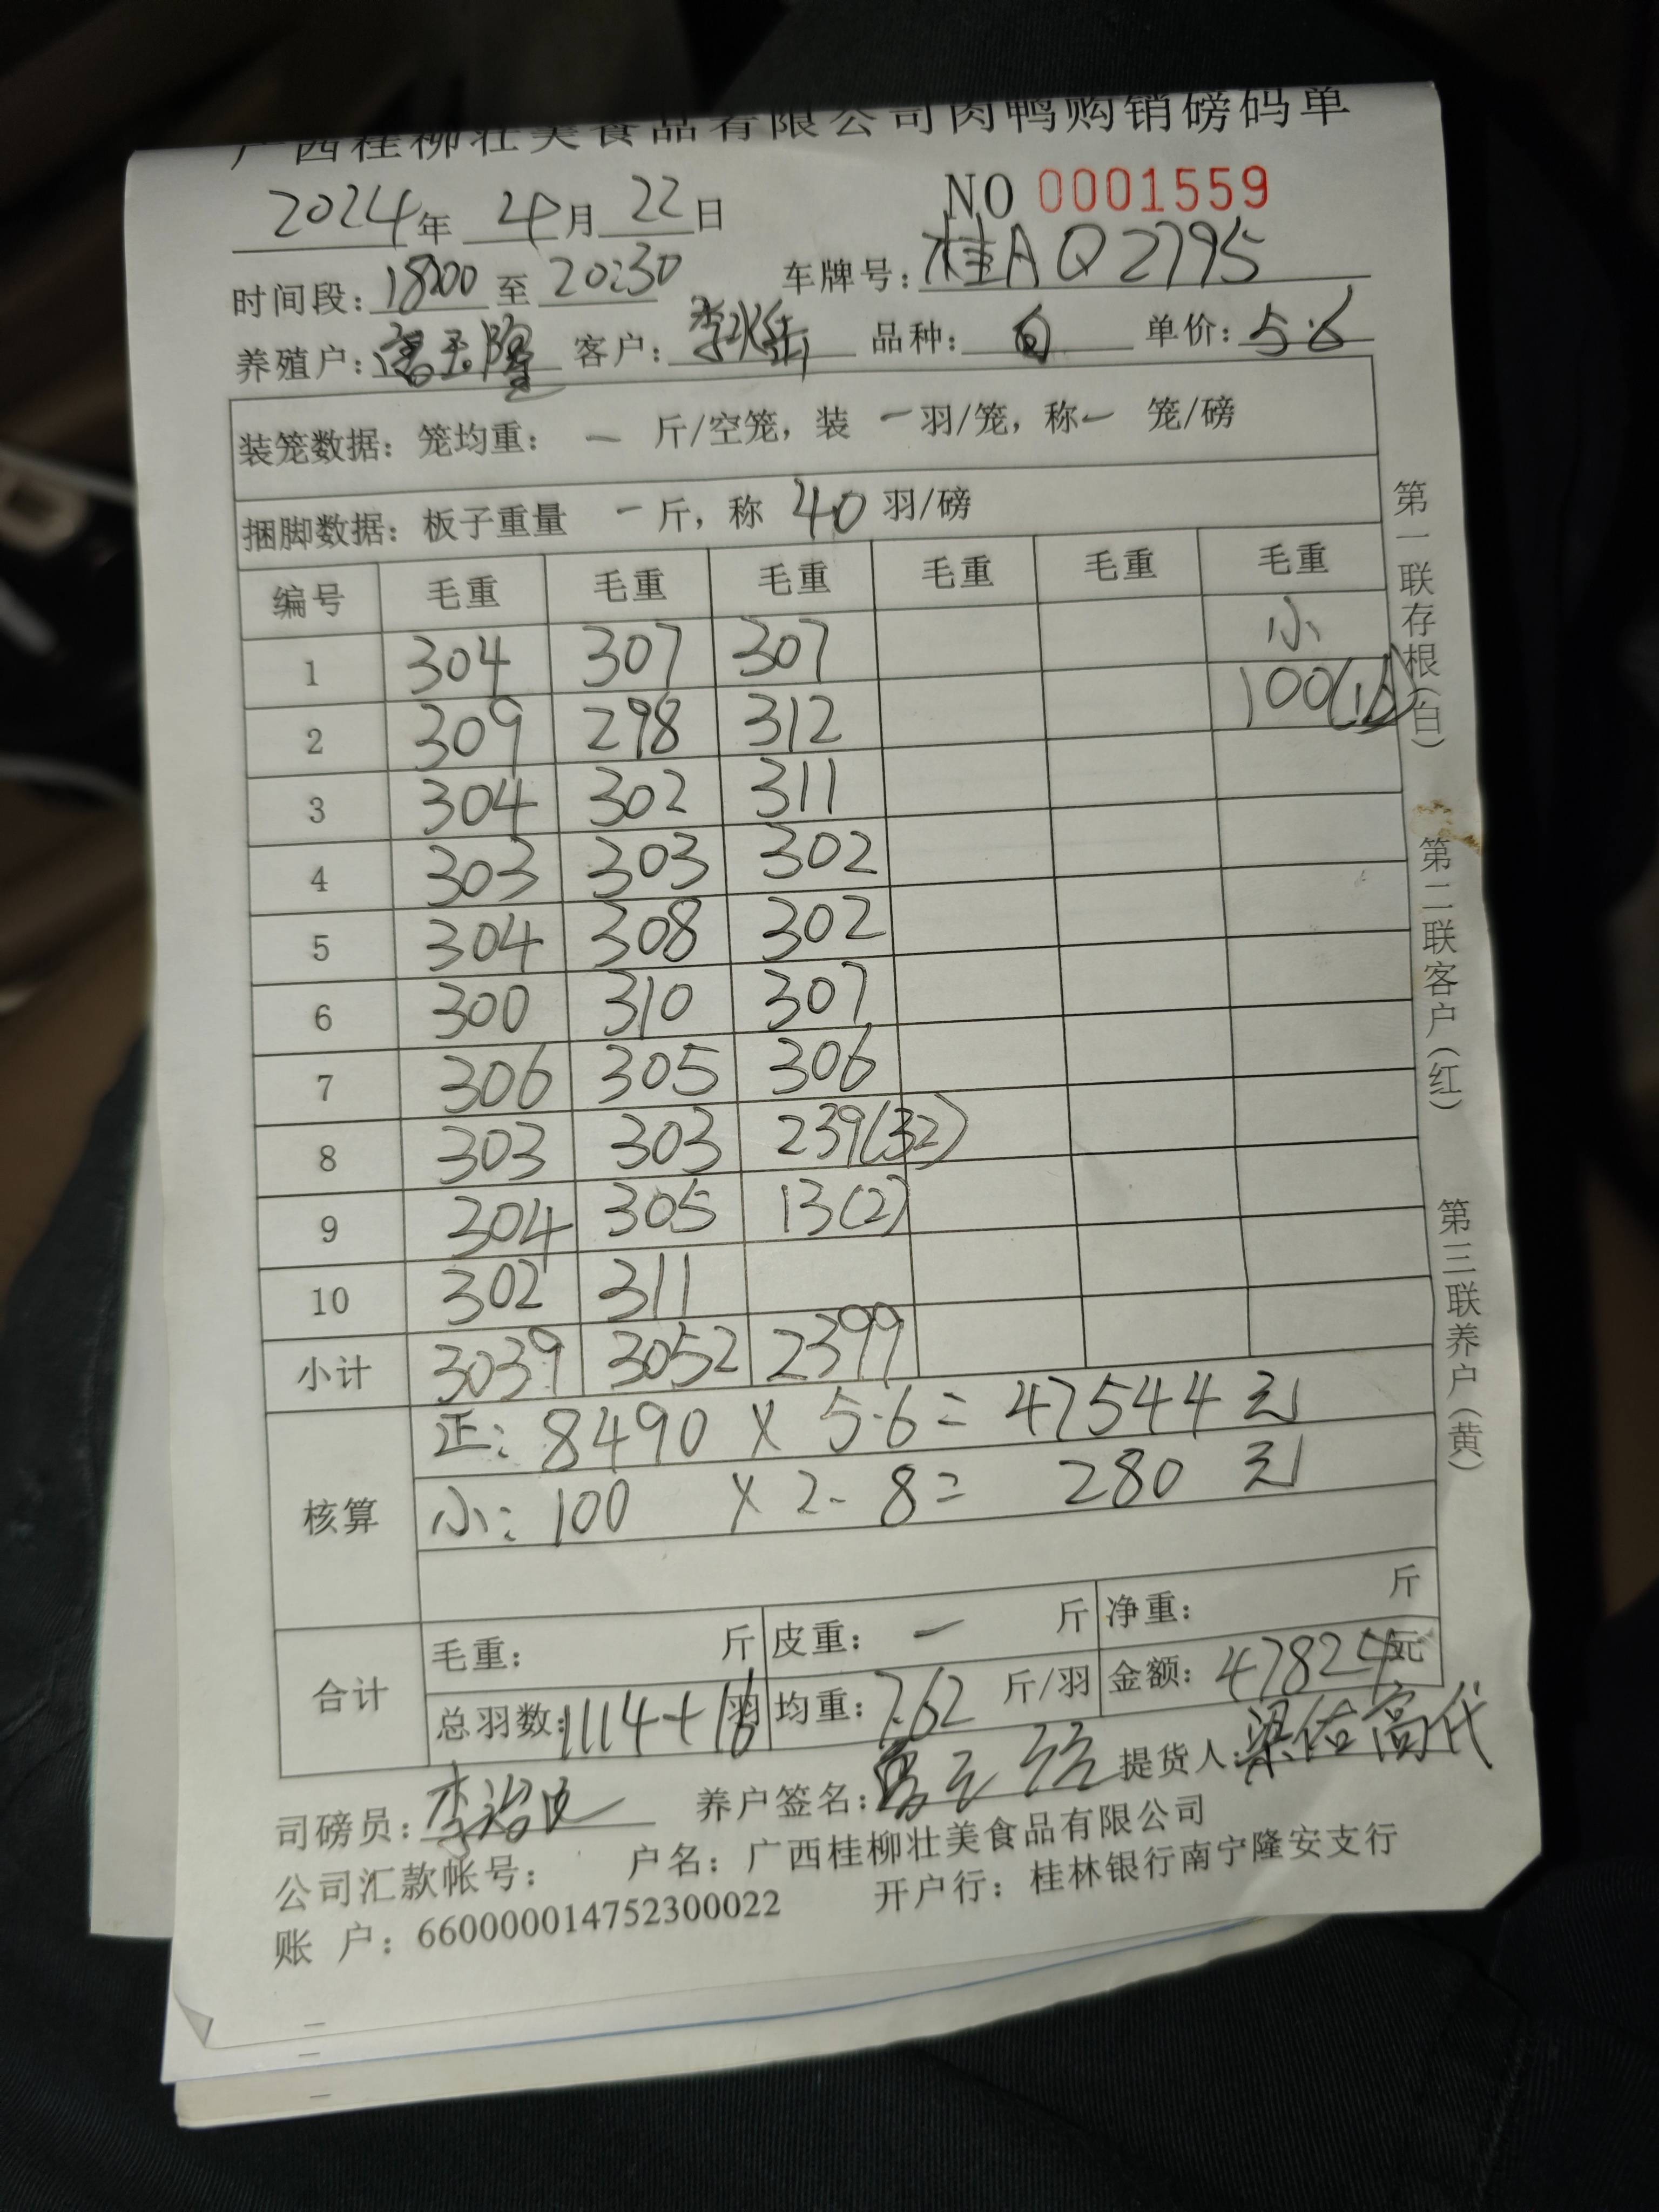 广西桂柳壮美食品有限公司肉鸭购销磅码单
2024年 4月 22日 NO 0001559
时间段: 18:00 至 20:30 车牌号: 桂AQ2795
养殖户: 客户: 品种: 单价: 5.6
装笼数据: 笼均重: — 斤/空笼, 装 — 羽/笼, 称 — 笼/磅
捆脚数据: 板子重量 — 斤, 称 40 羽/磅
编号 毛重 毛重 毛重 毛重 毛重 毛重
1 304 307 307 小
2 309 298 312 100(16)
3 304 302 311
4 303 303 302
5 304 308 302
6 300 310 307
7 306 305 306
8 303 303 239(32)
9 304 305 13(2)
10 302 311
小计 3039 3052 2399
核算
正: 8490 × 5.6 = 47544 元
小: 100 × 2.8 = 280 元
合计
毛重: 斤 皮重: — 斤 净重: 斤
总羽数: 1114+16 羽 均重: 7.62 斤/羽 金额: 47824 元
司磅员: 养户签名: 提货人:
公司汇款帐号: 户名: 广西桂柳壮美食品有限公司
账 户: 660000014752300022 开户行: 桂林银行南宁隆安支行
第一联存根(白)
第二联客户(红)
第三联养户(黄)